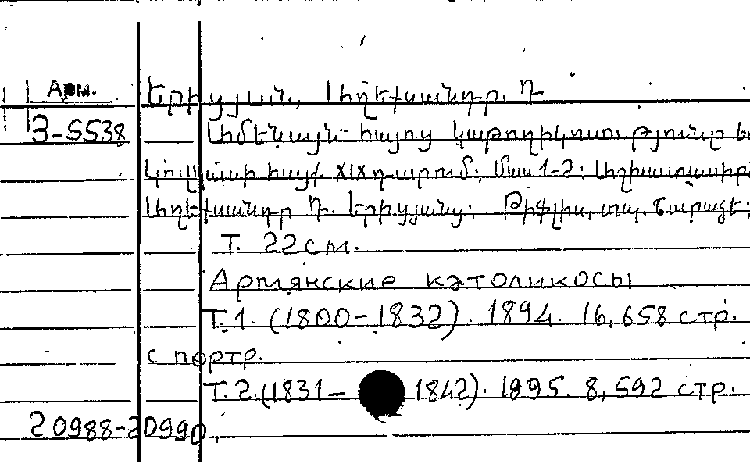 Арм. Երիցյան, Ալեքսանդր Դ
З-5538 Ամենայն հայոց կաթողիկոսությունը եւ
Կովկասի հայք XIX դարում: Մաս 1-2: Աշխատասիր
Ալեքսանդր Դ. Երիցյանց: Թիֆլիս, տպ. Շարաձե;
Т. 22 см.
Армянские католикосы
Т.1. (1800-1832). 1894. 16, 658 стр.
с портр.
Т.2.(1831- 1842). 1895. 8, 592 стр.
20988-20990.